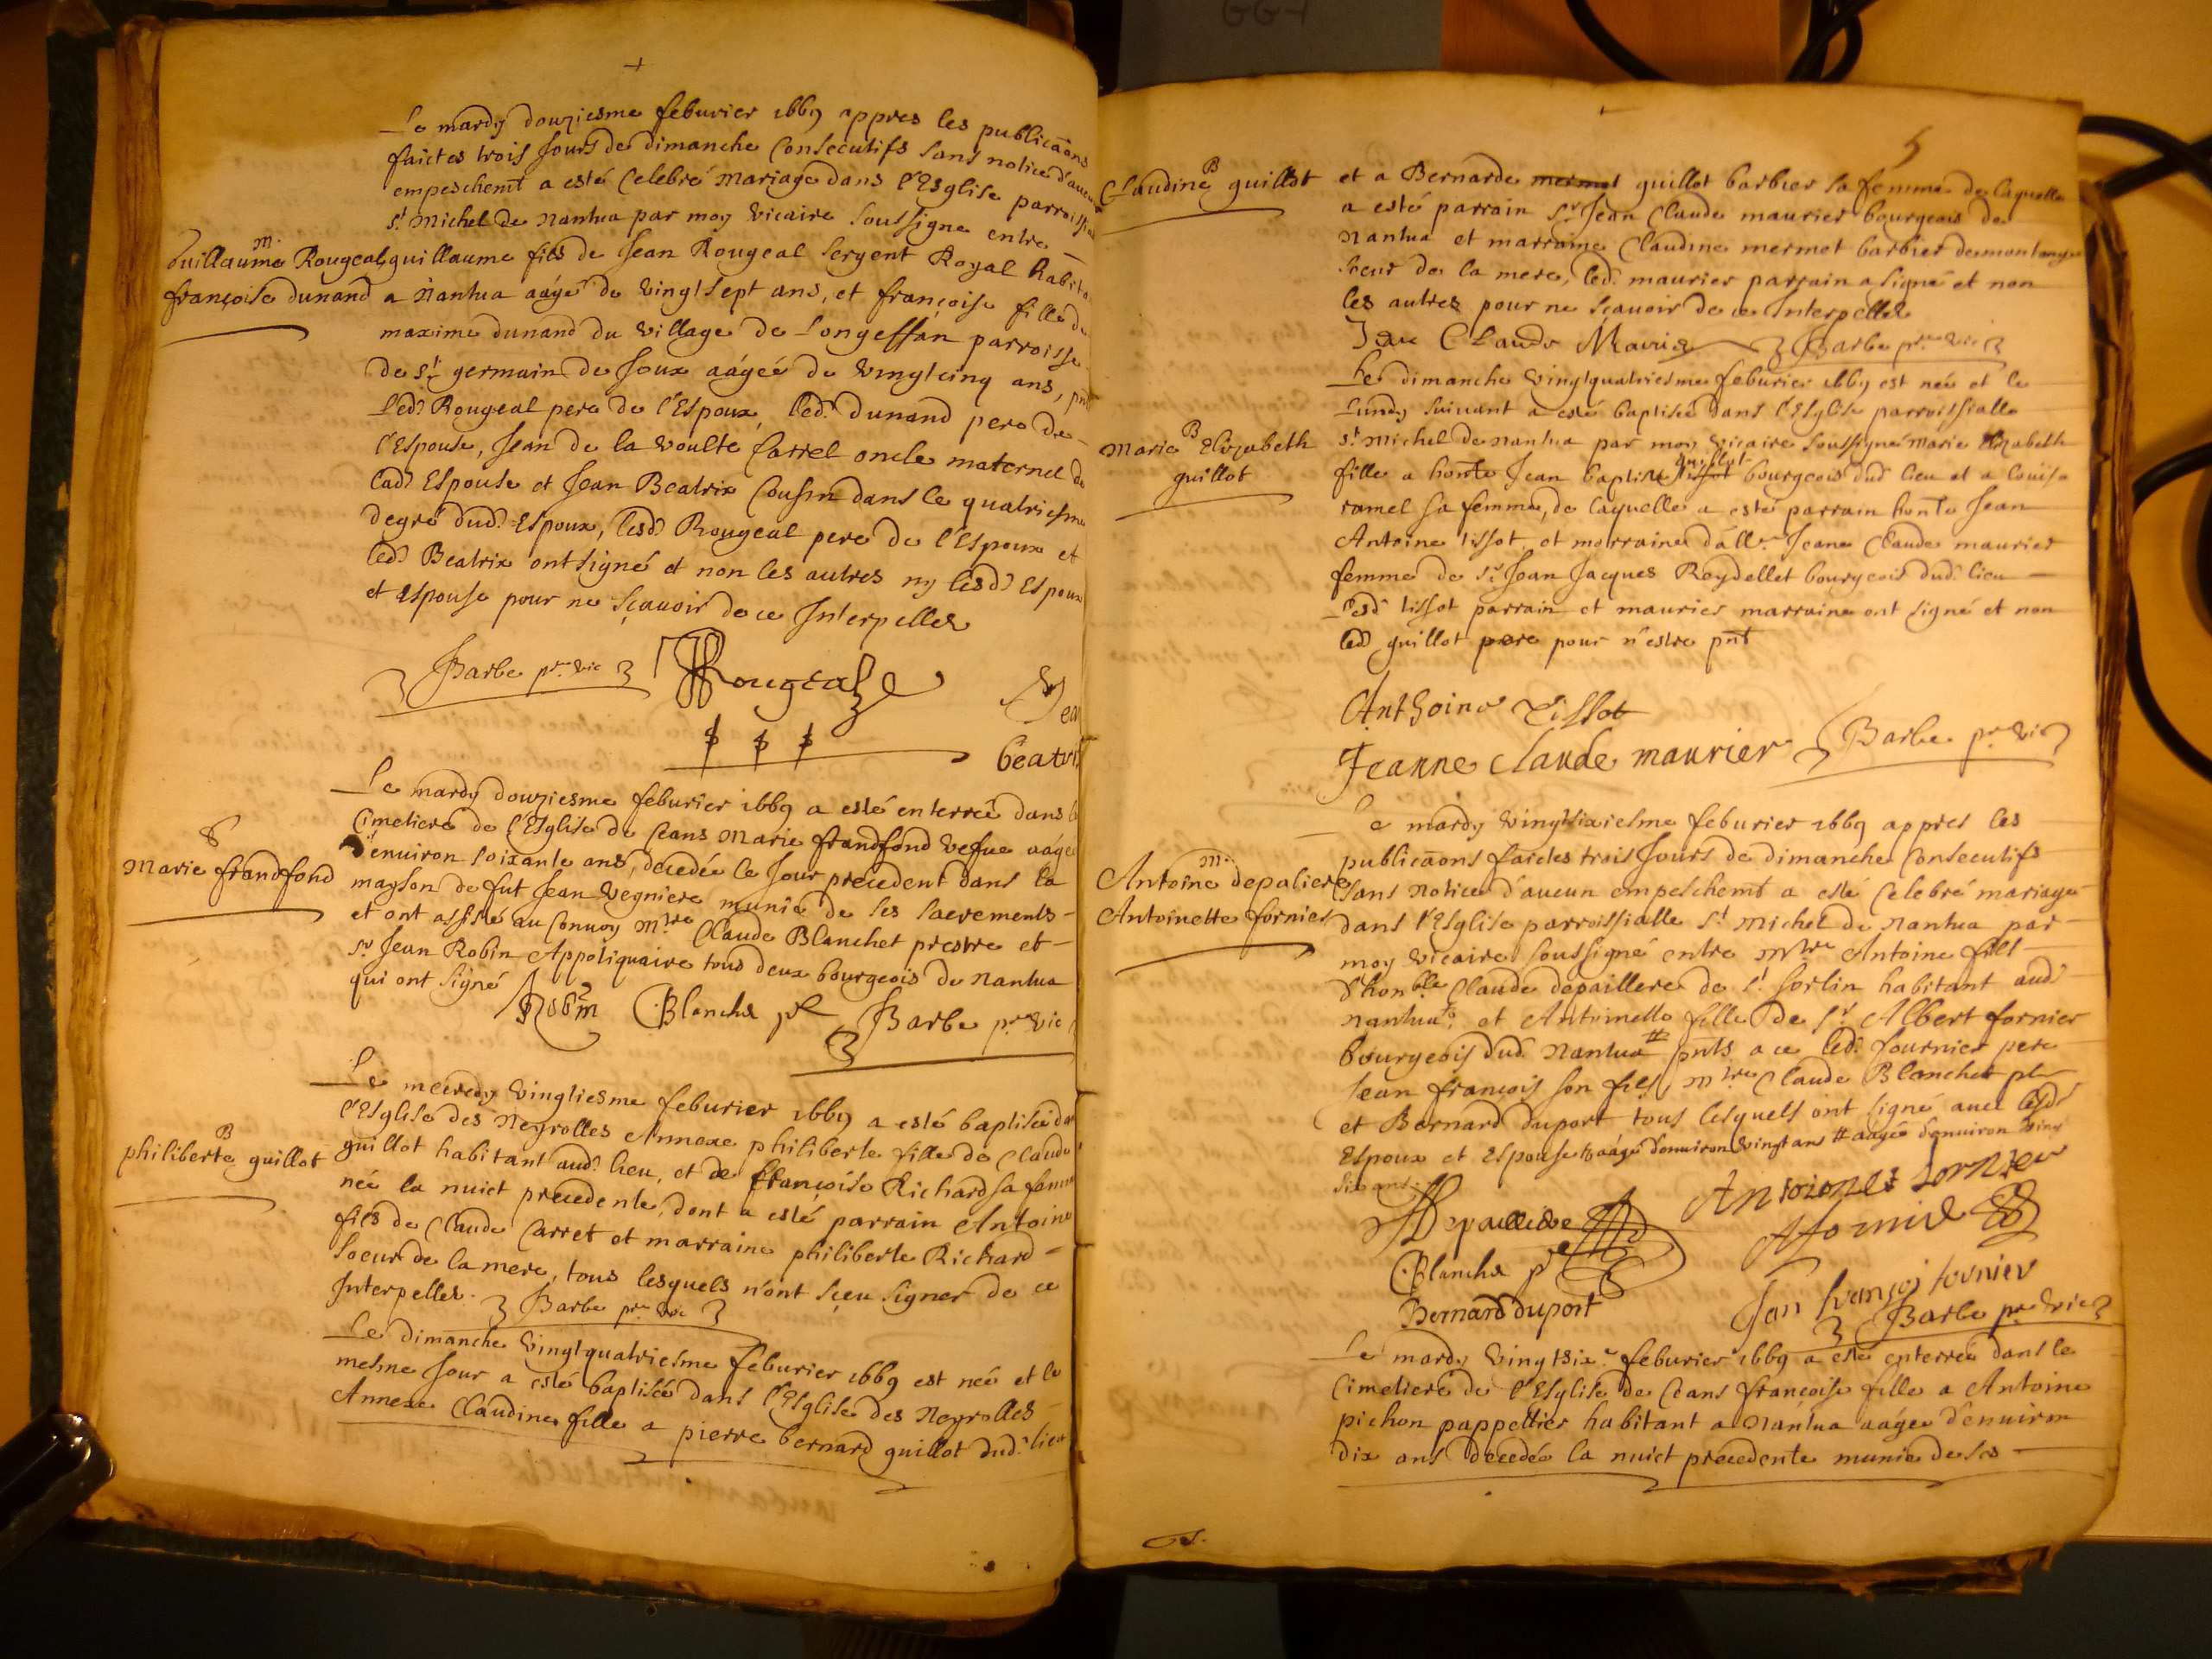 Le mardy douziesme feburier 1669 appres les publicaons
faictes trois Jours de dimanche Consecutifs sans notice d'aucun
empeschemt a esté Celebré mariage dans l'Esglise parroissial
st Michel de Nantua par moy vicaire soussigne entre
m.
Guillaume Rougeal
françoise dunand
guillaume fils de Jean Rougeal sergent Royal habita
a Nantua aagé de vingtsept ans, et françoise fille de
maxime dunand du village de Longeffan parroisse
de st germain de Joux aagéé de vingtcinq ans, pnt
Led Rougeal pere de l'Espoux, led. dunand pere de
l'Espouse, Jean de la voulte Carrel oncle maternel de
lad Espouse et Jean Beatrix Cousin dans le quatriesme
degré dud. Espoux, lesd Rougeal pere de l'Espoux et
led Beatrix ont signé et non les autres ny lesd Espoux
et Espouse pour ne sçauoir de ce Interpelles
Barbe pre vic
Rougeal
Jea
beatri
Le mardy douziesme feburier 1669 a esté enterrée dans le
Cimetiere de l'Esglise de Ceans Marie frandfond vefue aagée
Marie frandfond
d'enuiron soixante ans, decedée le Jour precedent dans la
mayson de fut Jean vegniere munie de ses sacrements
et ont assisté au Conuoy mtre Claude Blanchet prestre et
sr Jean Robin Appotiquaire tous deux bourgeois de Nantua
qui ont signé
Robin
C. Blanchet ptr
Barbe pre vic
Le mecredy vingtiesme feburier 1669 a esté baptisée da
l'Esglise des Neyrolles Annexe philiberte fille de Claude
B
philiberte guillot
guillot habitant aud. lieu, et de françoise Richard sa femme
née la nuict precedente, dont a esté parrain Antoine
fils de Claude Carret et marraine philiberte Richard
soeur de la mere, tous lesquels n'ont sçeu signer de ce
Interpelles.
Barbe pre vic
Le dimanche vingtquatriesme feburier 1669 est née et le
mesme Jour a esté baptisée dans l'Esglise des Neyrolles
Annexe Claudine fille a pierre bernard guillot dud. lieu
5
B
Claudine guillot
et a Bernarde mermet guillot barbier sa femme de laquelle
a esté parrain sr Jean Claude maurier bourgeois de
Nantua et marraine Claudine mermet barbier demontange
soeur de la mere, led. maurier parrain a signé et non
les autres pour ne sçauoir de ce Interpelles
Jan Claude Maurier
Barbe pre vic
Le dimanche vingtquatriesme feburier 1669 est née et le
Lundy suiuant a esté baptisée dans l'Esglise parroissialle
B
Marie Elizabeth
guillot
st Michel de Nantua par moy vicaire soussigné Marie Elizabeth
fille a honte Jean baptiste tissot guillot bourgeois dud lieu et a Louise
ramel sa femme, de laquelle a esté parrain honte Jean
Antoine tissot et marraine dalle Jeane Claude maurier
femme de sr Jean Jacques Reydellet bourgeois dud. lieu
Lesd tissot parrain et maurier marraine ont signé et non
led guillot pere pour n'estre pnt
Anthoine Tissot
Jeanne claude maurier
Barbe pre vic
Le mardy vingtsixiesme feburier 1669 appres les
publicaons faictes trois Jours de dimanche Consecutifs
m.
Antoine depaliere
Antoinette fornier
sans notice d'aucun empeschemt a esté Celebré mariage
dans l'Esglise parroissialle st Michel de Nantua par
moy vicaire soussigné entre mtre Antoine fils
d'honble Claude depaillere de st sorlin habitant aud
Nantua, et Antoinette fille de sr Albert fornier
bourgeois dud. Nantua # pnts a ce led. fournier pere
Jean françois son fils, mtre Claude Blanchet ptr
et Bernard duport tous lesquels ont signé auec lesds
Espoux et Espouse aagé d'enuiron vingt ans # aagée d'enuiron vingt
six ans.
Depaillere
Antoinete fornier
Afornier
C. Blanchet ptr
Bernard duport
Jan françoi fornier
Barbe pre vic
Le mardy vingtsixe feburier 1669 a esté enterrée dans le
Cimetiere de l'Esglise de Ceans françoise fille a Antoine
pichon pappettier habitant a Nantua aagée d'enuiron
dix ans decedée la nuict precedente munie de ses